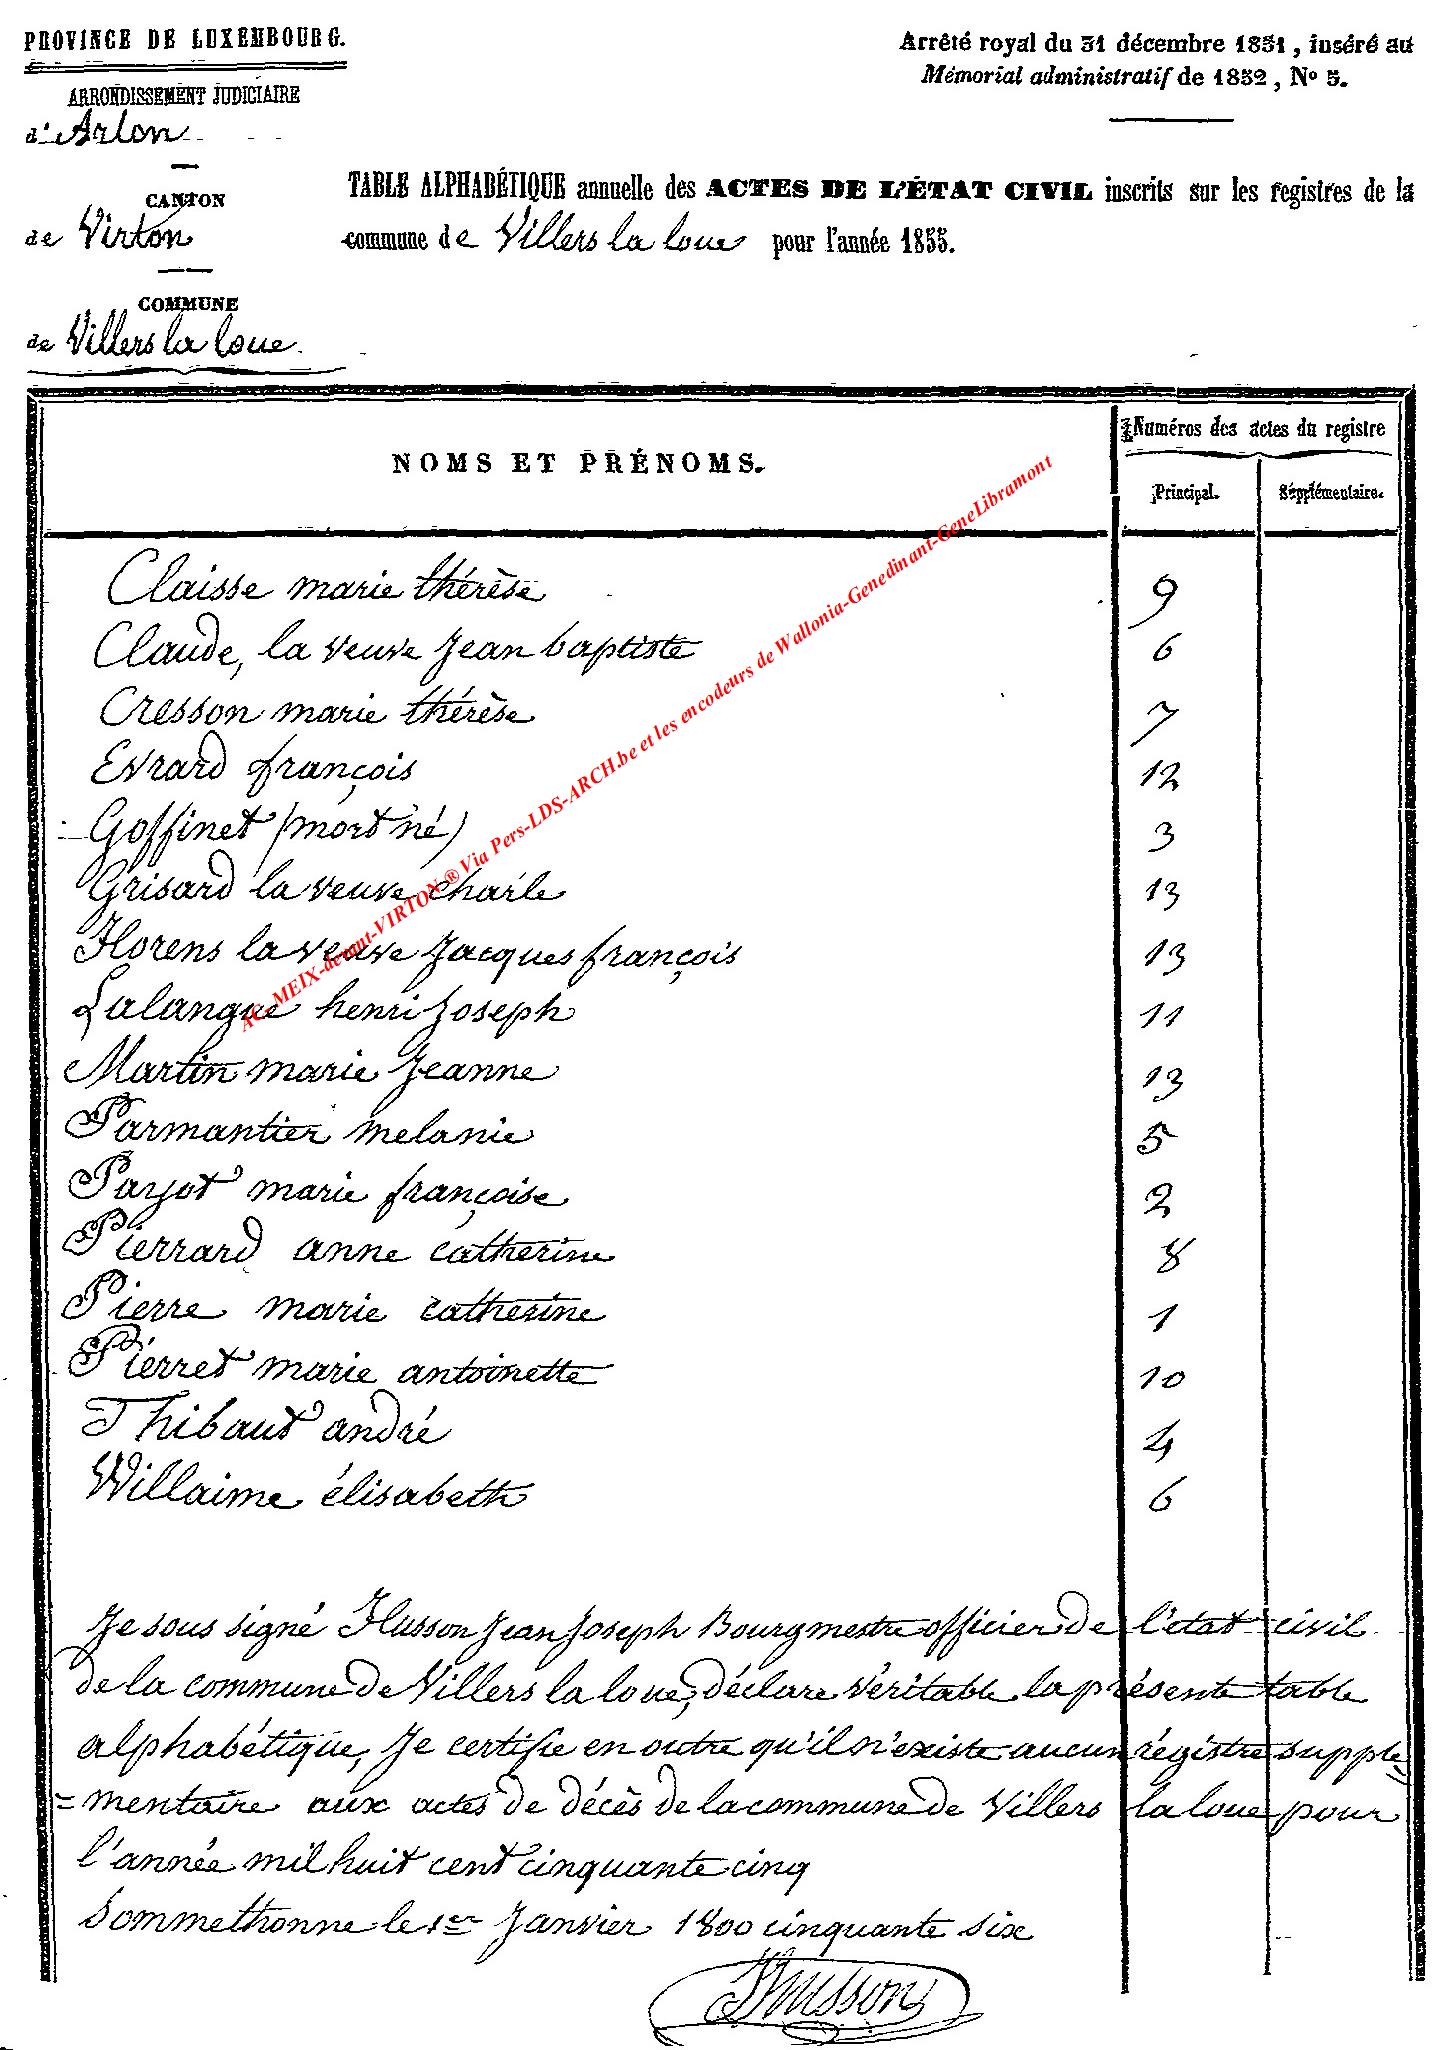 PROVINCE DE LUXEMBOURG.
ARRONDISSEMENT JUDICIAIRE
d'Arlon
CANTON
de Virton
COMMUNE
de Villers la loue
Arrêté royal du 31 décembre 1831, inséré au
Mémorial administratif de 1832, No 5.
TABLE ALPHABÉTIQUE annuelle des ACTES DE L'ÉTAT CIVIL inscrits sur les registres de la
commune de Villers la loue pour l'année 1855.
NOMS ET PRÉNOMS.
Numéros des actes du registre
Principal. Supplémentaire.
Claisse marie thérèse 9
Claude, la veuve Jean baptiste 6
Cresson marie thérèse 7
Evrard françois 12
Goffinet (mort né) 3
Grisard la veuve charle 13
Florens la veuve Jacques françois 13
Lalangue henri Joseph 11
Martin marie Jeanne 13
Parmantier melanie 5
Payot marie françoise 2
Pierrard anne catherine 8
Pierre marie catherine 1
Pierret marie antoinette 10
Thibaut andré 4
Willaime élisabeth 6
Je sous signé Husson Jean Joseph Bourgmestre officier de l'état civil
de la commune de Villers la loue, déclare véritable la présente table
alphabétique, Je certifie en outre qu'il n'existe aucun régistre supple=
=mentaire aux actes de décès de la commune de Villers la loue pour
l'année mil huit cent cinquante cinq
Sommethonne le 1er Janvier 1800 cinquante six
Husson
AC. MEIX-devant-VIRTON ® Via Pers-LDS-ARCH.be et les encodeurs de Wallonia-Genedinant-GeneLibramont